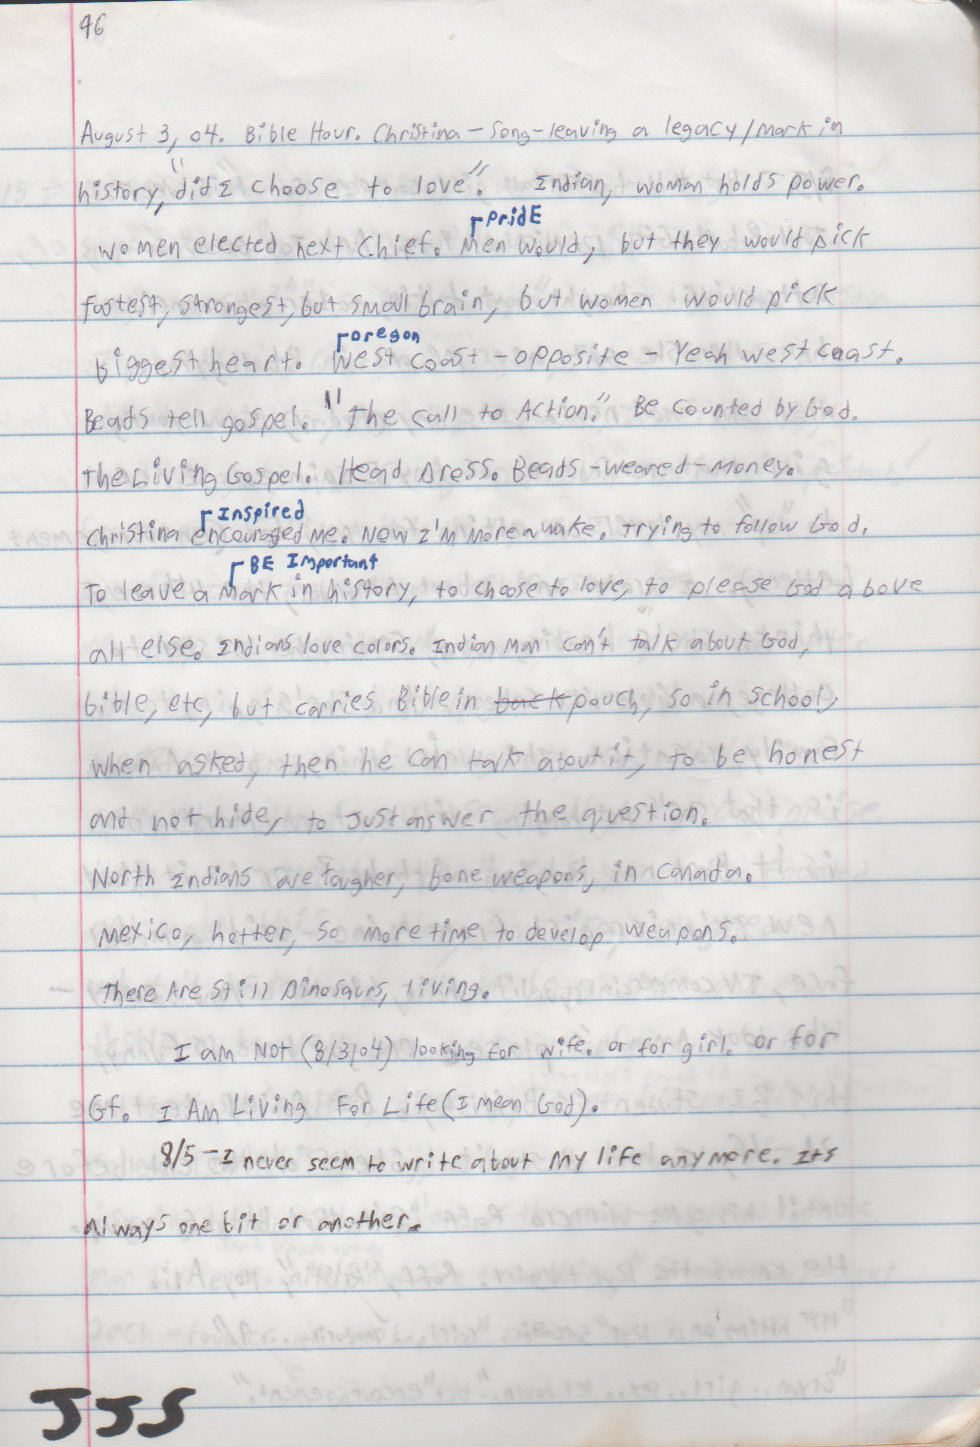 96
August 3, 04. Bible Hour. Christina - Song - leaving a legacy/mark in
history, "did I choose to love". Indian, woman holds power.
PridE
women elected next Chief. Men would, but they would pick
fastest, strongest, but small brain, but women would pick
oregon
biggest heart. West coast - opposite - Yeah west coast.
Beads tell gospel. "The call to Action." Be Counted by God.
The Living Gospel. Head Dress. Beads - weared - money.
Inspired
Christina encouraged me. Now I'm more awake. Trying to follow God.
BE Important
To leave a mark in history, to choose to love, to please God above
all else. Indians love colors. Indian Man can't talk about God,
bible, etc, but carries Bible in back pouch, so in school,
when asked, then he can talk about it, to be honest
and not hide, to Just answer the question.
North Indians are tougher, bone weapons, in Canada.
Mexico, hotter, so more time to develop weapons.
There Are Still Dinosaurs, living.
I am Not (8/3/04) looking for wife. or for girl. or for
Gf. I Am Living For Life (I mean God).
8/5 - I never seem to write about My life anymore. Its
Always one bit or another.
JJS